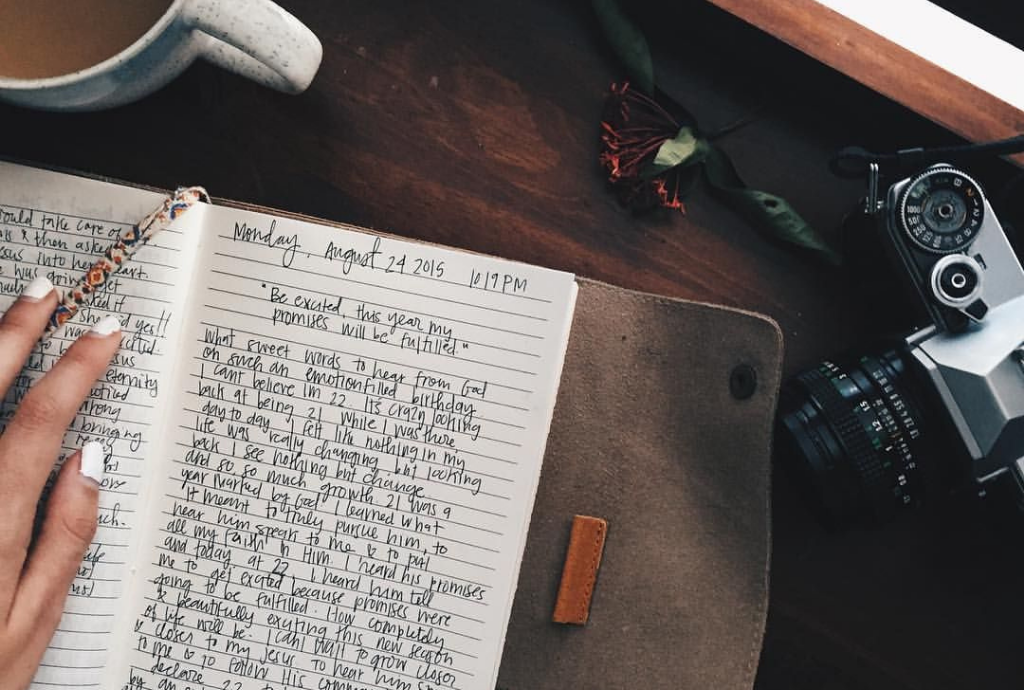 ould take care of
& then asked
esus into her heart.
e was going
ted it
She said yes!!
was
esus
eternity
wrong
bringing
Monday, August 24 2015 1019PM
"Be excited, this year my
promises will be fulfilled."
What sweet words to hear from God
on such an emotionfilled birthday
I cant believe im 22. Its crazy looking
back at being 21 while I was there
day to day I felt like nothing in my
life was really changing, but looking
back I see nothing but change
and so so much growth. 21 was a
year marked by God. I learned what
it meant to truly pursue him, to
hear him speak to me & to put
all my faith in Him. I heard his promises
and today at 22 I heard him tell
me to get excited because promises were
going to be fulfilled. How completely
& beautifully exciting this new season
of life will be. I cant wait to grow closer
& closer to my Jesus. To hear him
to me & to follow His
declare 22
by an